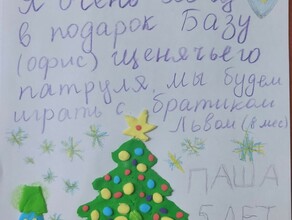 Я очень хочу
в подарок Базу
(офис) Щенячьего
патруля, мы будем
играть с братиком
Львом (8 мес)
ПАША
5 ЛЕТ